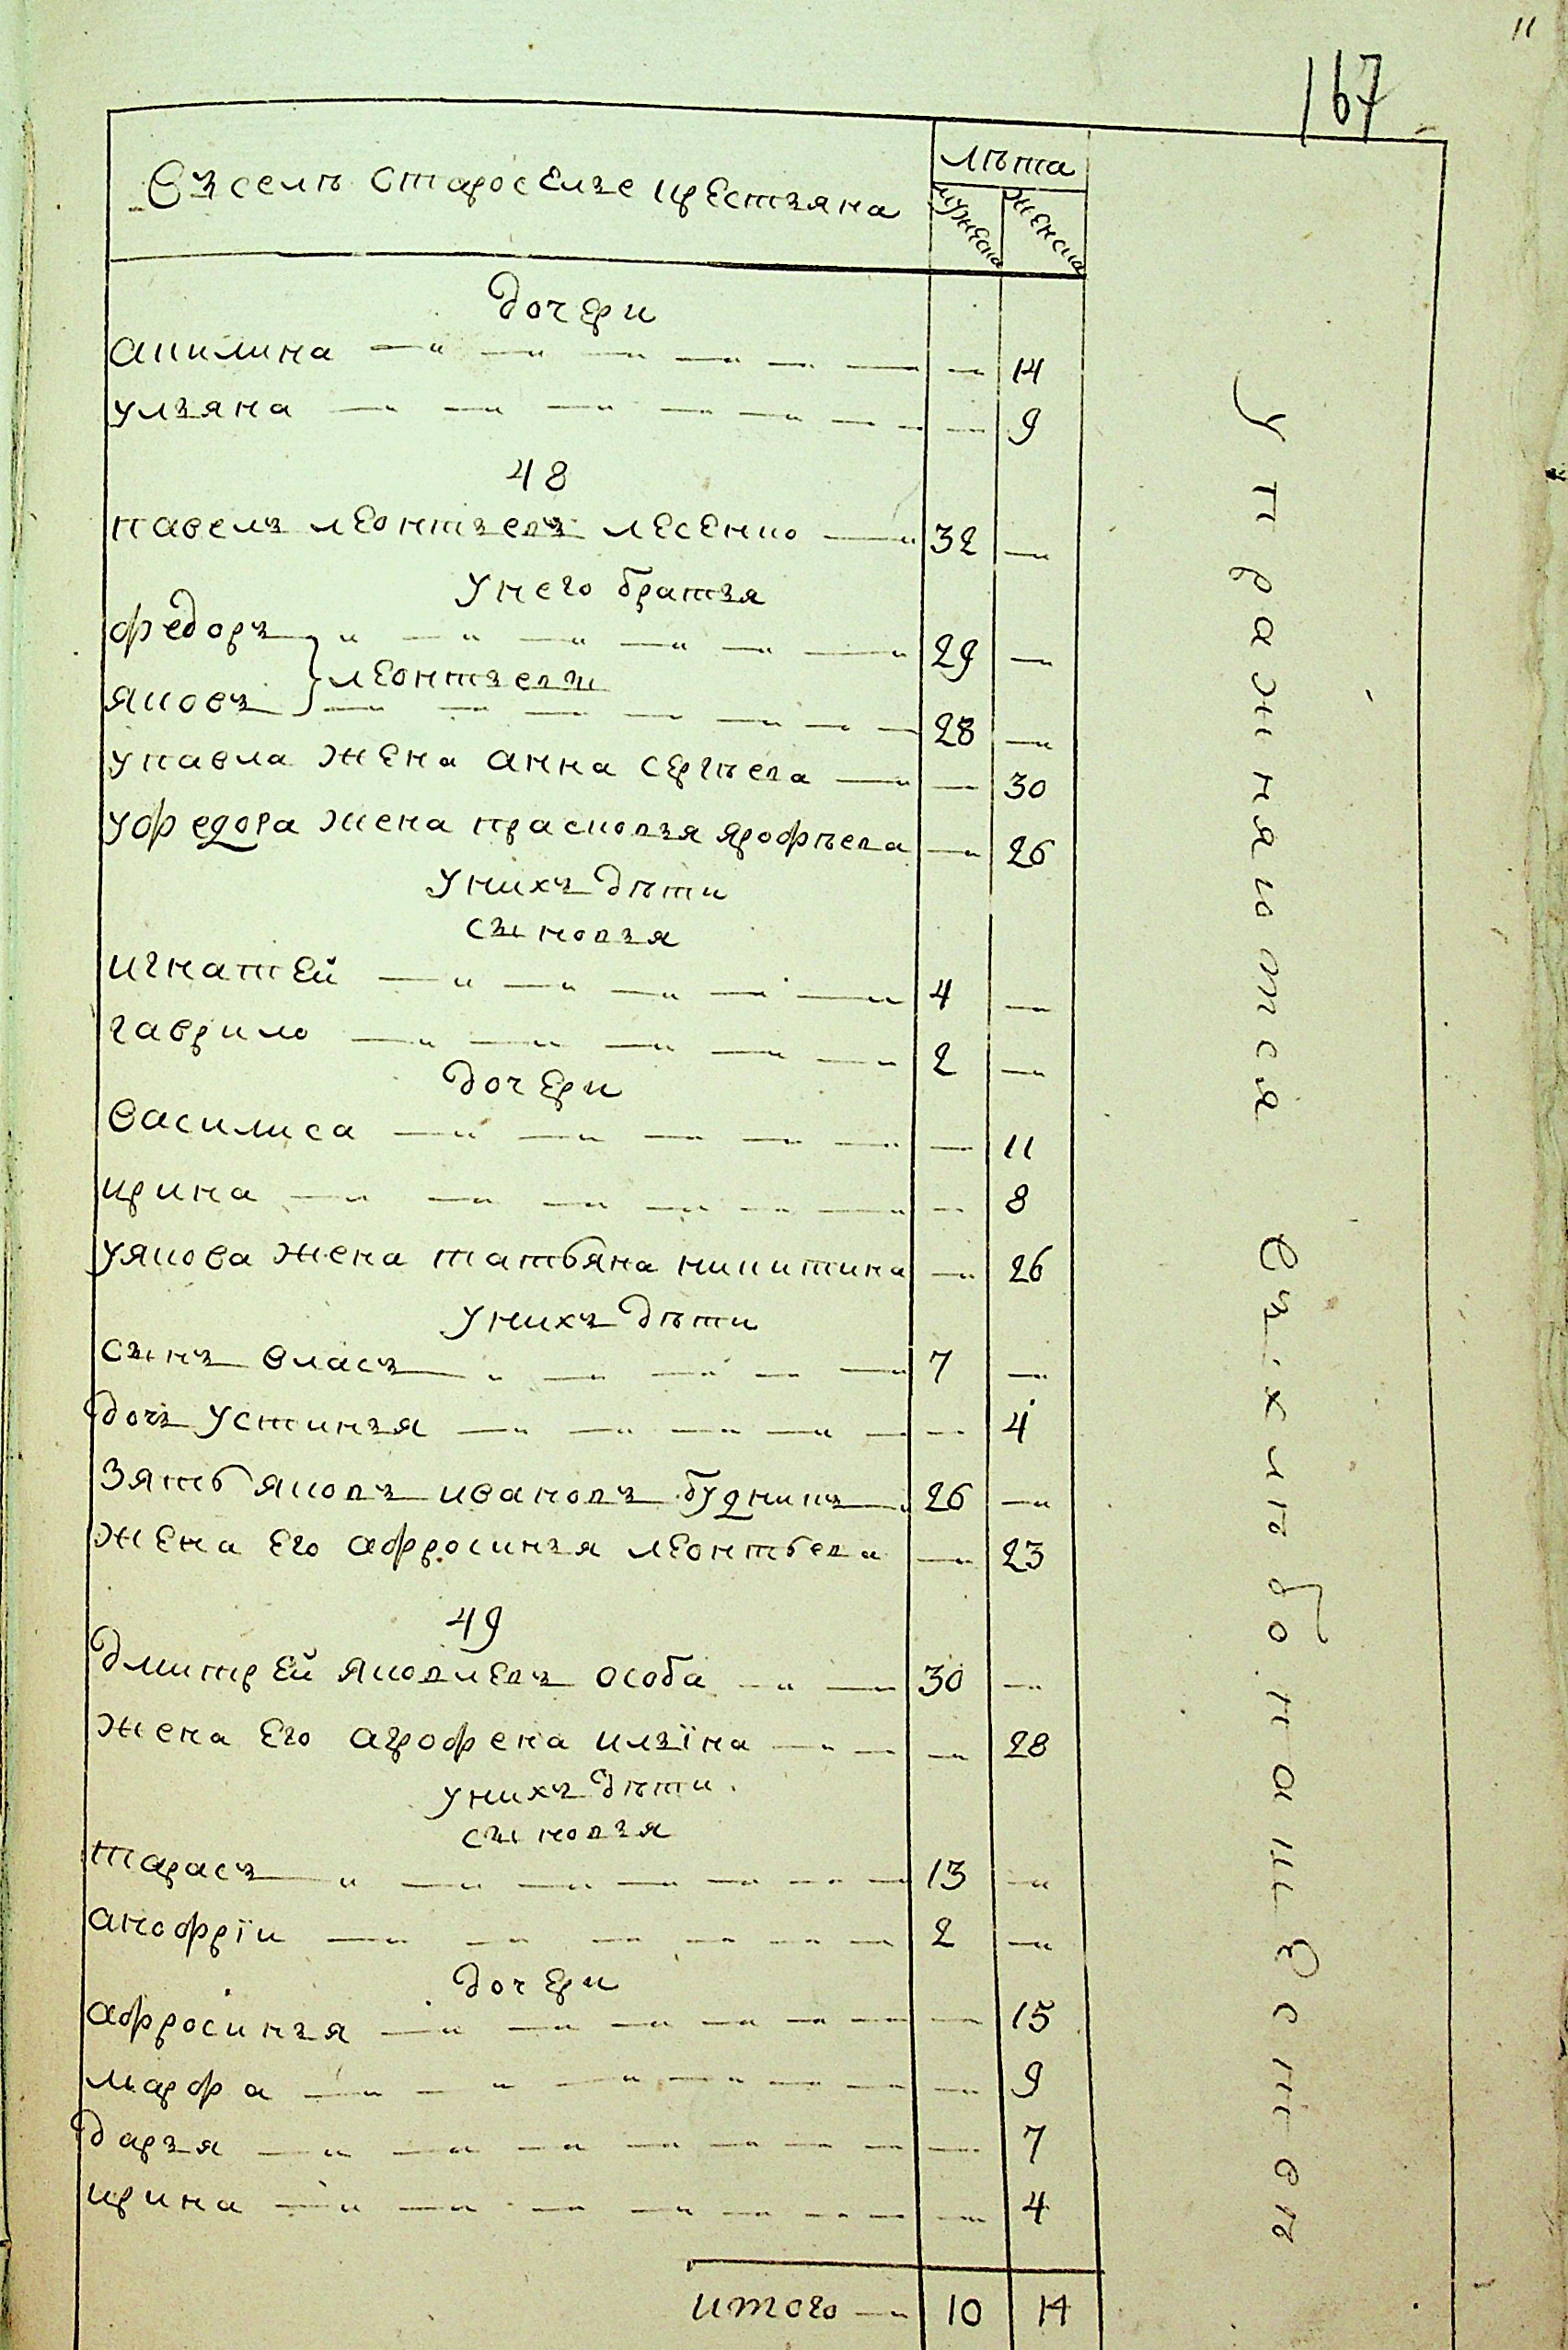 11
167
Въ селѣ Староселье крестьяна
лѣта
мужеска
женска
дочери
акилина 14
ульяна 9
48
павелъ леонтьевъ лесенко 32
у него братья
федоръ 29
леонтьевы
яковъ 28
у павла жена анна сергѣева 30
у федора жена прасковья ярофѣева 26
у нихъ дѣти
сыновья
игнатей 4
гаврило 2
дочери
василиса 11
ирина 8
у якова жена татьяна никитина 26
у нихъ дѣти
сынъ власъ 7
дочь устинья 4
зять яковъ ивановъ будникъ 26
жена его афросинья леонтьева 23
49
дмитрей яковлевъ особа 30
жена его агрофена ильїна 28
у нихъ дѣти
сыновья
тарасъ 13
анофрїи 2
дочери
афросинья 15
марфа 9
дарья 7
ирина 4
итого 10 14
упражняются